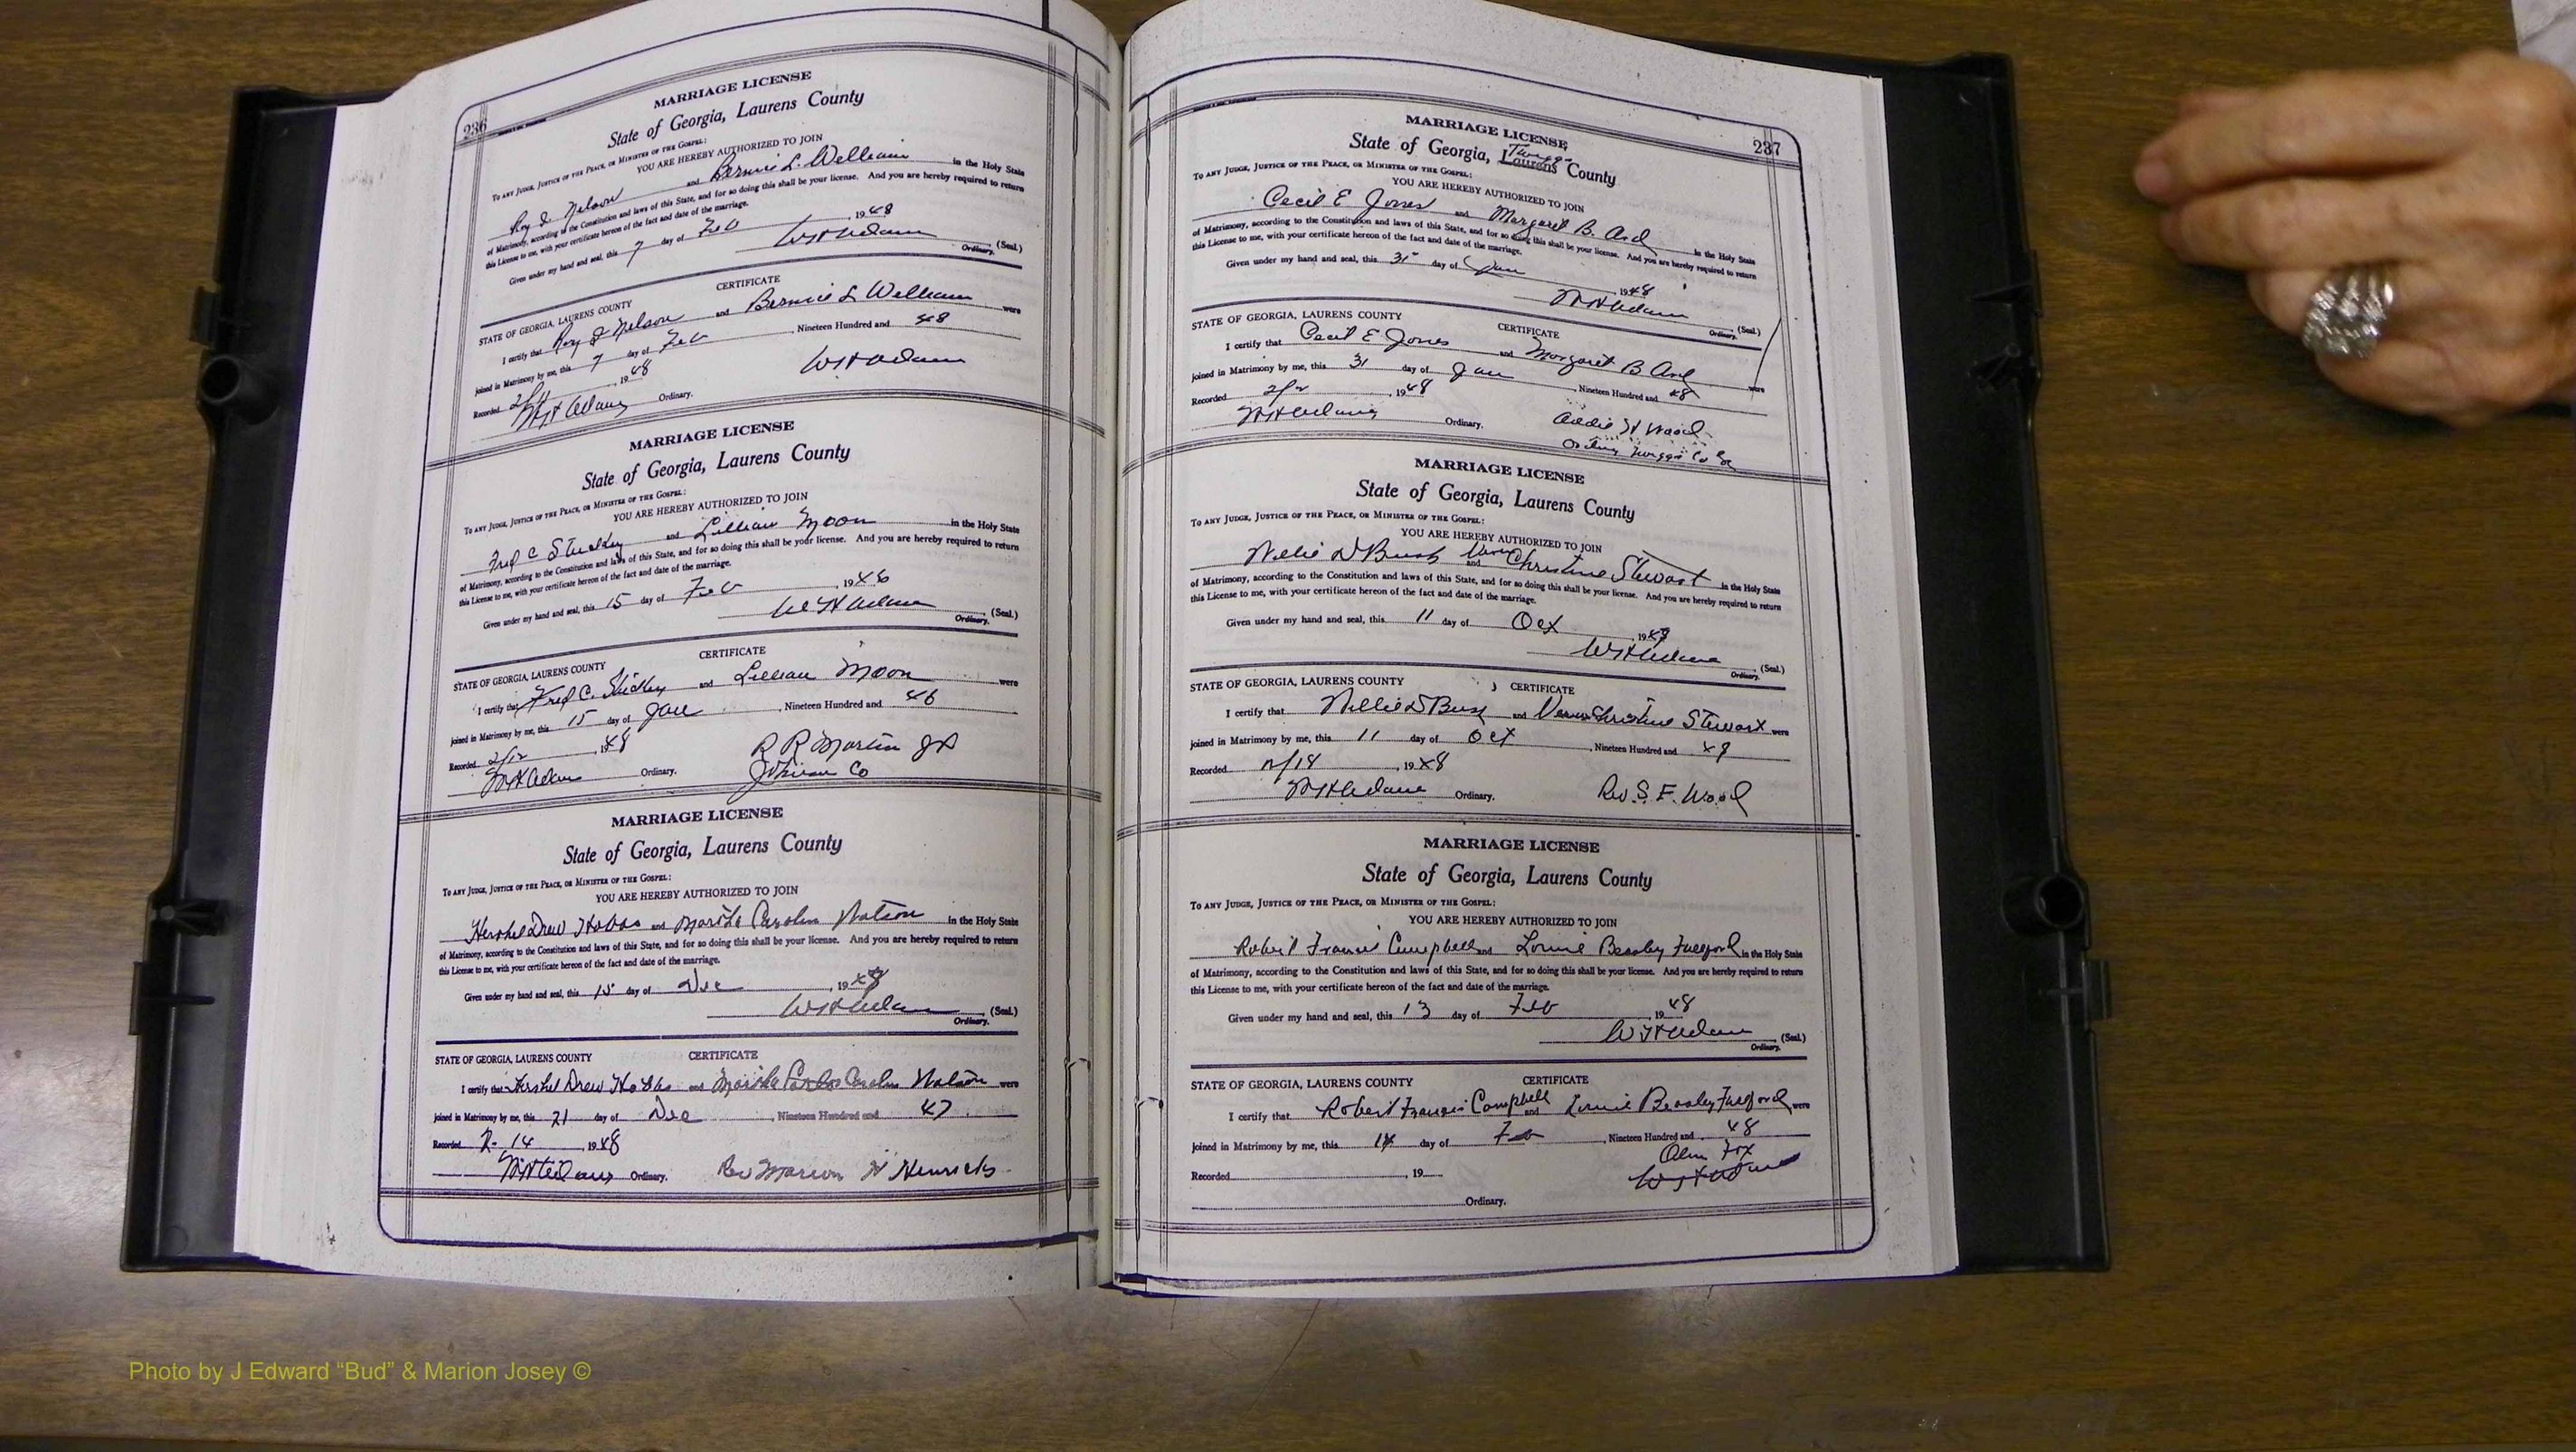 236
MARRIAGE LICENSE
State of Georgia, Laurens County
To any Judge, Justice of the Peace, or Minister of the Gospel:
YOU ARE HEREBY AUTHORIZED TO JOIN
Roy J. Nelson and Bernice L. William in the Holy State
of Matrimony, according to the Constitution and laws of this State, and for so doing this shall be your license. And you are hereby required to return
this License to me, with your certificate hereon of the fact and date of the marriage.
Given under my hand and seal, this 7 day of Feb, 1948
WH Adams (Seal.)
Ordinary.
CERTIFICATE
STATE OF GEORGIA, LAURENS COUNTY
I certify that Roy J Nelson and Bernice L William were
joined in Matrimony by me, this 7 day of Feb, Nineteen Hundred and 48
Recorded 2/11, 1948 WH Adams
WH Adams Ordinary.
MARRIAGE LICENSE
State of Georgia, Laurens County
To any Judge, Justice of the Peace, or Minister of the Gospel:
YOU ARE HEREBY AUTHORIZED TO JOIN
Fred C Stuckey and Lillian Moon in the Holy State
of Matrimony, according to the Constitution and laws of this State, and for so doing this shall be your license. And you are hereby required to return
this License to me, with your certificate hereon of the fact and date of the marriage.
Given under my hand and seal, this 15 day of Feb, 1946
WH Adams (Seal.)
Ordinary.
CERTIFICATE
STATE OF GEORGIA, LAURENS COUNTY
I certify that Fred C. Stuckey and Lillian Moon were
joined in Matrimony by me, this 15 day of Jan, Nineteen Hundred and 46
Recorded 2/12, 1948 R R Martin JP
WH Adams Ordinary. Johnson Co
MARRIAGE LICENSE
State of Georgia, Laurens County
To any Judge, Justice of the Peace, or Minister of the Gospel:
YOU ARE HEREBY AUTHORIZED TO JOIN
Hershel Drew Hobbs and Martha Carolyn Watson in the Holy State
of Matrimony, according to the Constitution and laws of this State, and for so doing this shall be your license. And you are hereby required to return
this License to me, with your certificate hereon of the fact and date of the marriage.
Given under my hand and seal, this 15 day of Dec, 19
WH Adams (Seal.)
Ordinary.
CERTIFICATE
STATE OF GEORGIA, LAURENS COUNTY
I certify that Hershel Drew Hobbs and Martha Carolyn Watson were
joined in Matrimony by me, this 21 day of Dec, Nineteen Hundred and 47
Recorded 2-14, 1948
WH Adams Ordinary. Rev Marion H Henricks
237
MARRIAGE LICENSE
State of Georgia, Laurens Twiggs County
To any Judge, Justice of the Peace, or Minister of the Gospel:
YOU ARE HEREBY AUTHORIZED TO JOIN
Cecil E Jones and Margaret B. Ard in the Holy State
of Matrimony, according to the Constitution and laws of this State, and for so doing this shall be your license. And you are hereby required to return
this License to me, with your certificate hereon of the fact and date of the marriage.
Given under my hand and seal, this 31 day of Jan, 1948
WH Adams (Seal.)
Ordinary.
STATE OF GEORGIA, LAURENS COUNTY CERTIFICATE
I certify that Cecil E Jones and Margaret B Ard were
joined in Matrimony by me, this 31 day of Jan, Nineteen Hundred and 48
Recorded 2/2, 1948
WH Adams Ordinary. Addie H Wood
Ordinary Twiggs Co Ga
MARRIAGE LICENSE
State of Georgia, Laurens County
To any Judge, Justice of the Peace, or Minister of the Gospel:
YOU ARE HEREBY AUTHORIZED TO JOIN
Willie D Bush and Christine Stewart in the Holy State
of Matrimony, according to the Constitution and laws of this State, and for so doing this shall be your license. And you are hereby required to return
this License to me, with your certificate hereon of the fact and date of the marriage.
Given under my hand and seal, this 11 day of Oct, 19
WH Adams (Seal.)
Ordinary.
STATE OF GEORGIA, LAURENS COUNTY CERTIFICATE
I certify that Willie D Bush and Christine Stewart were
joined in Matrimony by me, this 11 day of Oct, Nineteen Hundred and
Recorded, 1948
WH Adams Ordinary. Rev. S. F. Wood
MARRIAGE LICENSE
State of Georgia, Laurens County
To any Judge, Justice of the Peace, or Minister of the Gospel:
YOU ARE HEREBY AUTHORIZED TO JOIN
Robert Francis Campbell and Lonnie Beasley Fulford in the Holy State
of Matrimony, according to the Constitution and laws of this State, and for so doing this shall be your license. And you are hereby required to return
this License to me, with your certificate hereon of the fact and date of the marriage.
Given under my hand and seal, this 13 day of Feb, 1948
WH Adams (Seal.)
Ordinary.
STATE OF GEORGIA, LAURENS COUNTY CERTIFICATE
I certify that Robert Francis Campbell and Lonnie Beasley Fulford were
joined in Matrimony by me, this 14 day of Feb, Nineteen Hundred and 48
Fox
Recorded, 19 WH Adams
Ordinary.
Photo by J Edward “Bud” & Marion Josey ©